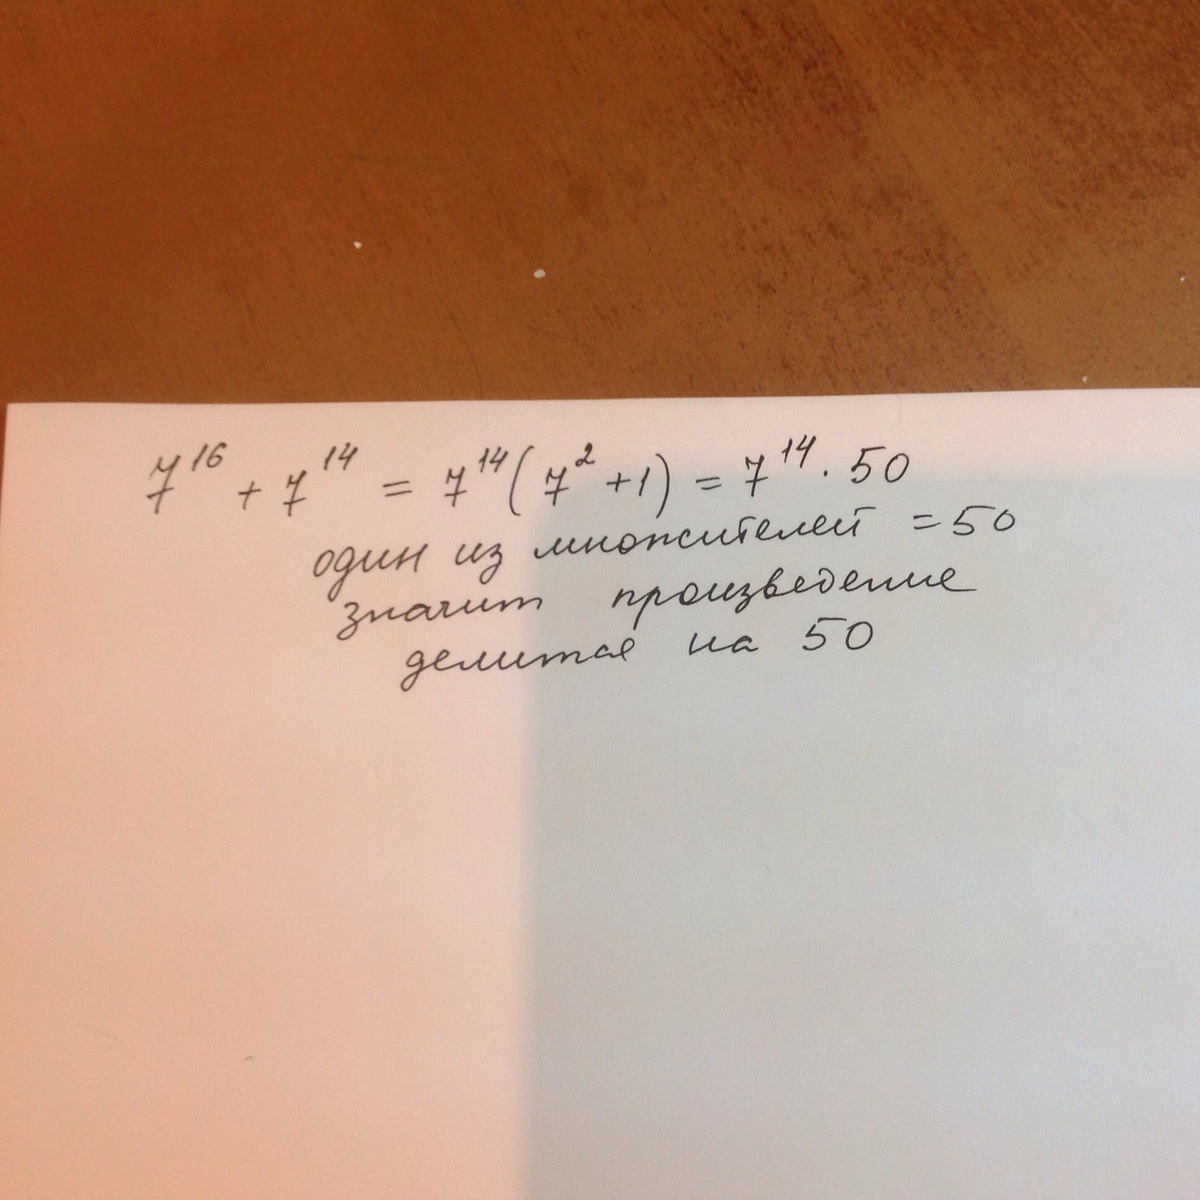 7^16 + 7^14 = 7^14 (7^2 + 1) = 7^14 · 50
один из множителей = 50
значит произведение
делится на 50